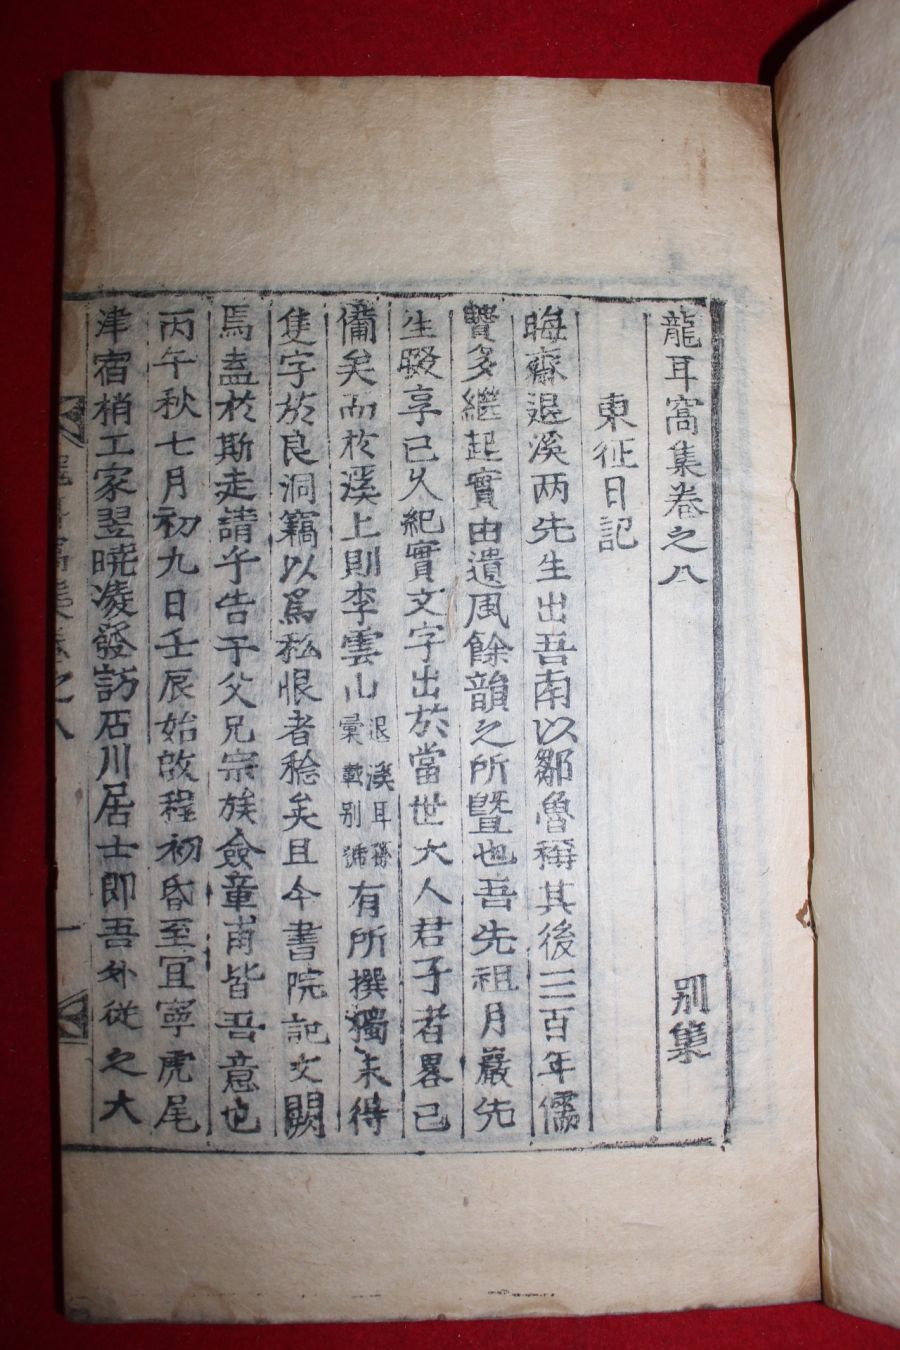 龍耳窩集卷之八 別集
東征日記
晦齋退溪两先生出吾南以鄒魯稱其後三百年儒
賢多繼起實由遺風餘韻之所曁也吾先祖月巖先
生腏享已久紀實文字出於當世大人君子者畧已
備矣而於溪上則李雲山退溪耳孫彙載别號有所撰獨未得
隻字於良洞竊以爲私恨者稔矣且今書院記文闕
焉盍於斯走請乎告于父兄宗族僉章甫皆吾意也
丙午秋七月初九日壬辰始啟程初昏至宜寧虎尾
津宿梢工家翌曉凌發訪石川居士即吾外從之大
龍耳窩集卷之八 一